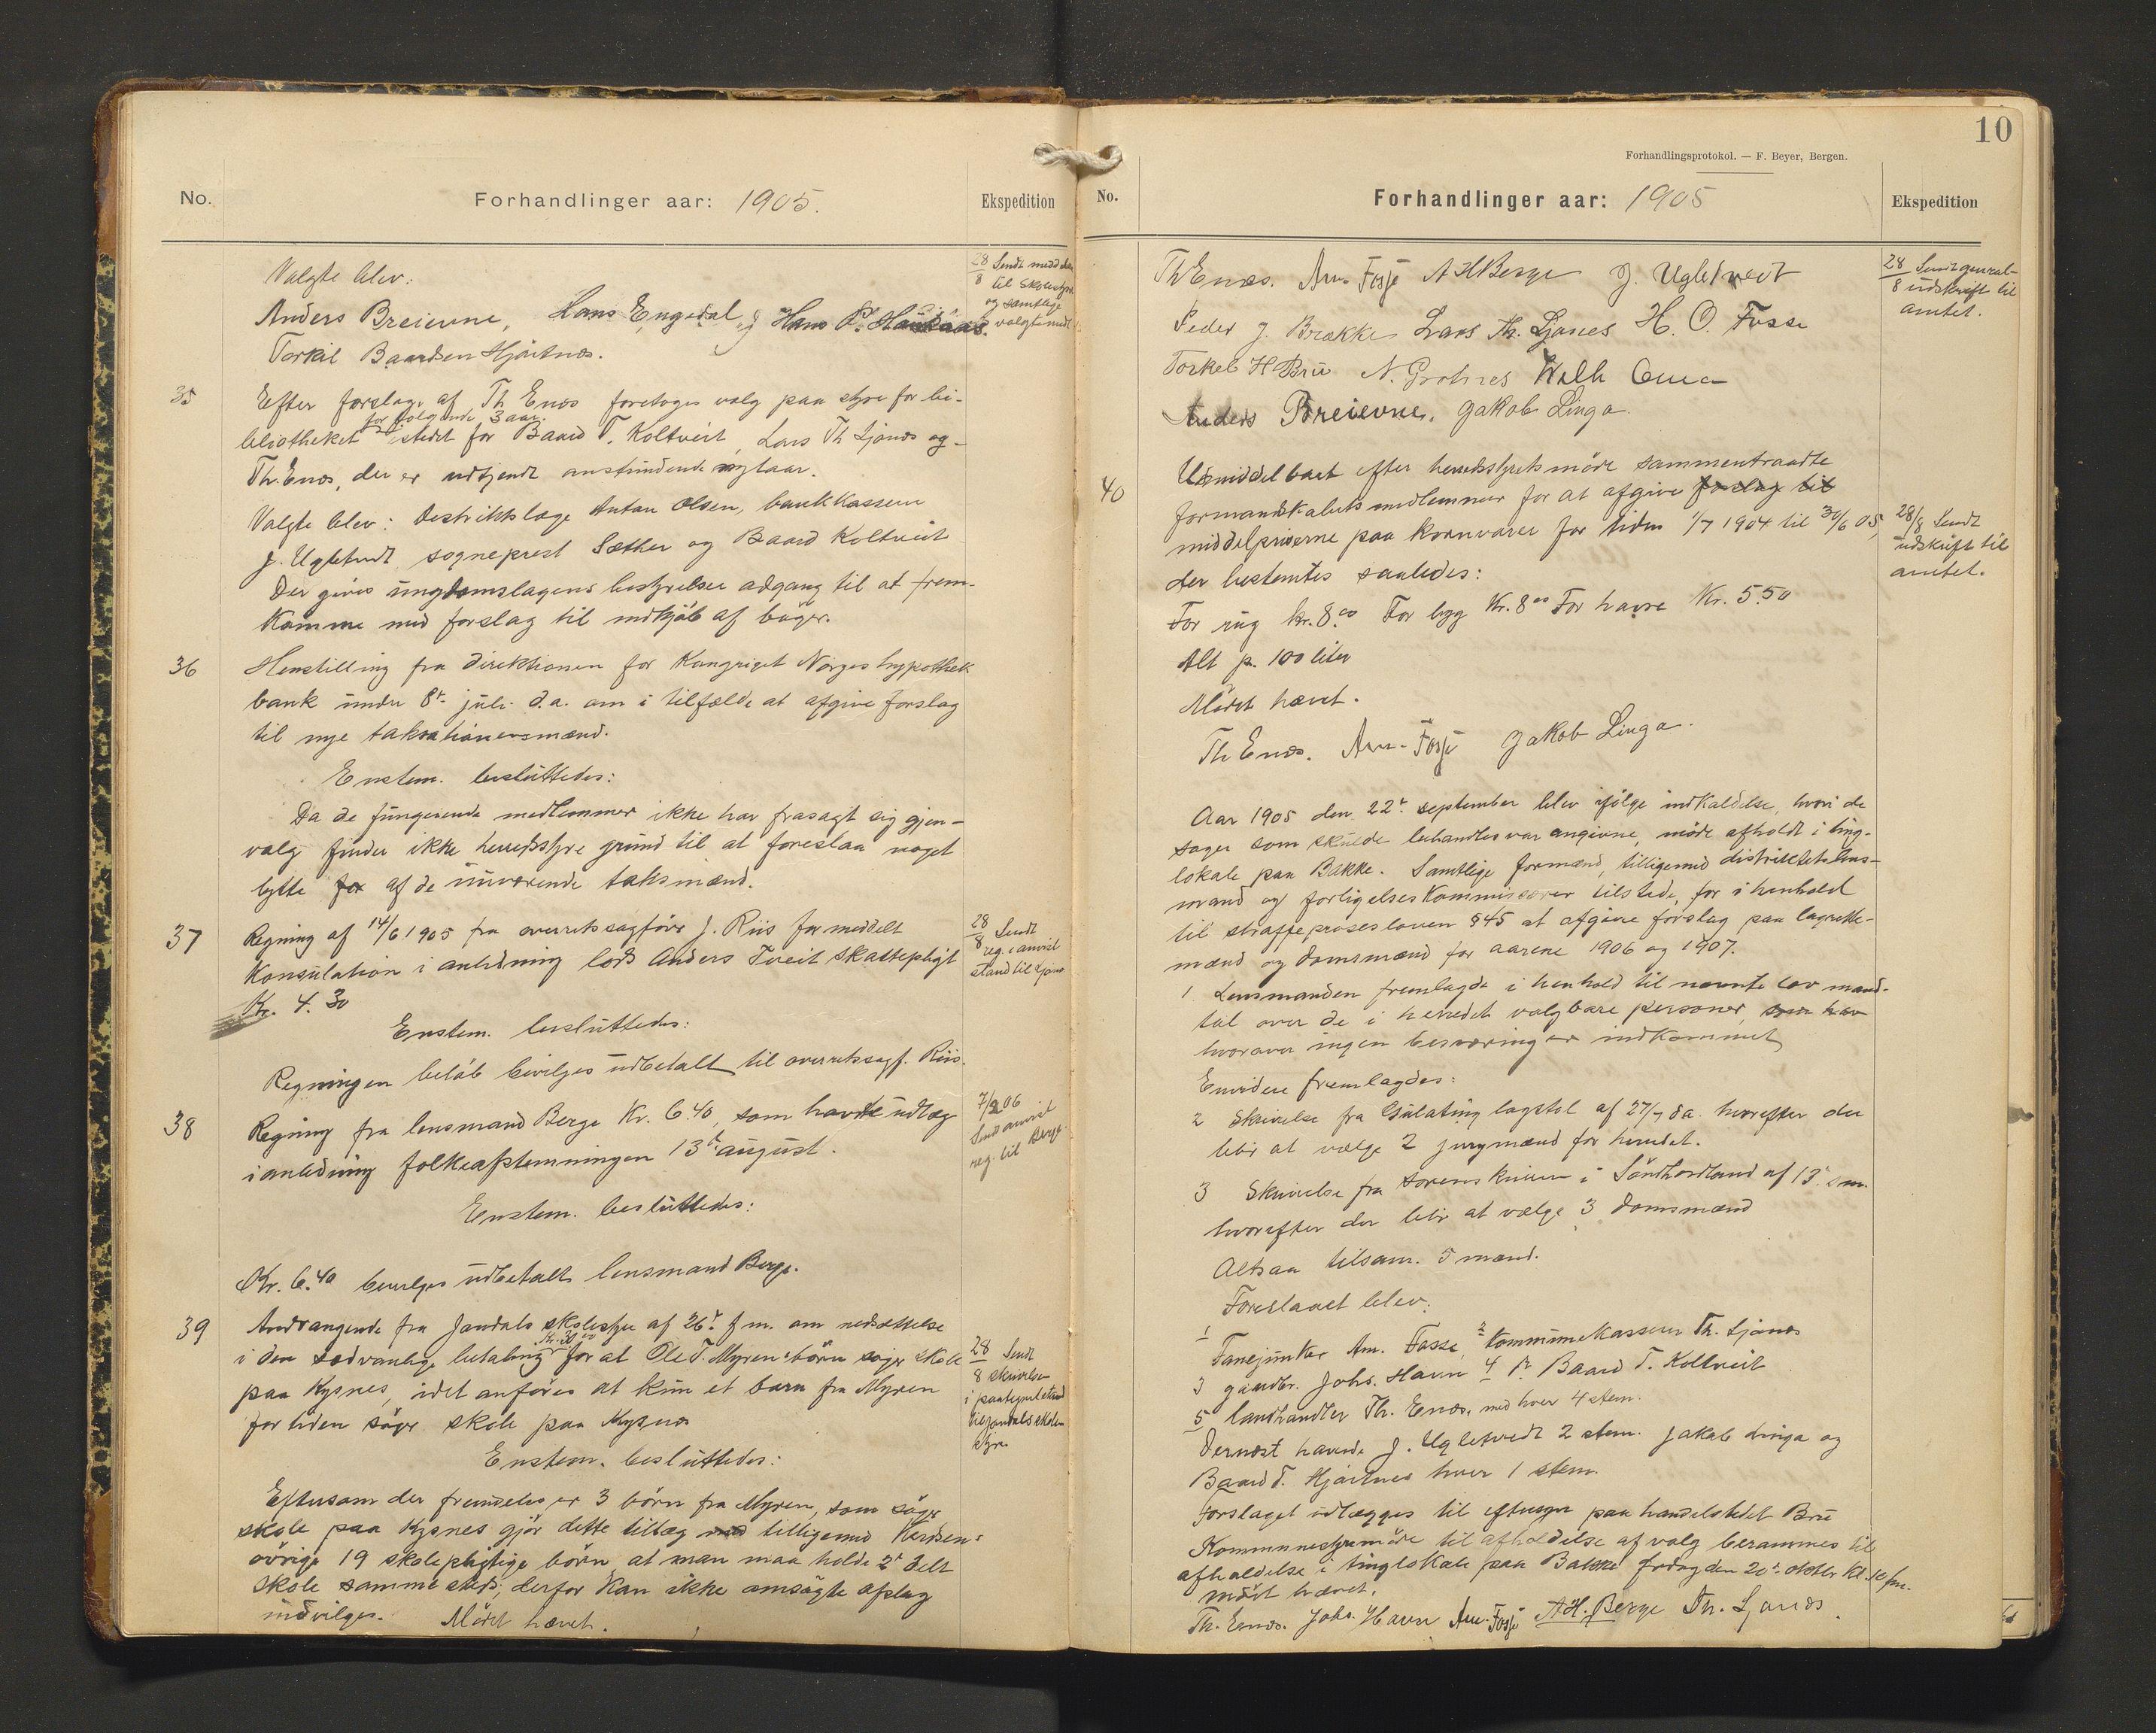 No.
Forhandlinger aar: 1905.
Ekspedition
Valgte blev:
Anders Breievne, Hans Engedal og Hans P.
Torkil Baardsen Hjartnes.
28/8 Sendt
til skolestyre
og samtlige
valgte
35
Efter forslag af Th Enæs foretoges valg paa styre for bi-
for følgende 3 aar
bliotheket istedet for Baard T. Koltveit, Lars Th Ljonæs og
Th. Enæs, der er udtjendt anstundende nytaar.
Valgte blev: Distriktslæge Anton Olsen, bankkasserer
J. Ugletvedt, sogneprest Sæther og Baard Koltveit
Der gives ungdomslagens bestyrelser adgang til at frem-
komme med forslag til indkjøb af bøger.
36
Henstilling fra direktionen for Kongriget Norges hypothek
bank under 8de juli d.a. om i tilfælde at afgive forslag
til nye taksationsmænd.
Enstem. besluttedes:
Da de fungerende medlemmer ikke har frasagt sig gjen-
valg finder ikke herredsstyre grund til at foreslaa noget
bytte for af de nuværende taksmænd.
37
Regning af 14/6 1905 fra overretssagfører J. Riis for meddelt
Konsulation i anledning lods Anders Tveit skattepligt
Kr. 4.30
28/8 Sendt
reg. i anvist
stand til Ljonæs
Enstem. besluttedes:
Regningens beløb bevilges udbetalt til overretssagf. Riis.
38
Regning fra lensmand Berge Kr. 6.40, som havte udlæg
i anledning folkeafstemningen 13de august.
7/2 06
Send anvist
reg. til Berge
Enstem. besluttedes:
Kr. 6.40 bevilges udbetalt lensmand Berge.
39
Andragende fra Jondals skolestyre af 26de f.m. om nedsættelse
Kr. 30.00
i den sedvanlige betaling for at Ole T. Myrens børn søger skole
paa Kysnes, idet anføres at kun et barn fra Myren
for tiden søger skole paa Kysnæs
28/8 Sendt
skrivelsen
i paategnet stand
til Jondals skole-
styre
Enstem. besluttedes:
Eftersom der fremdeles er 3 børn fra Myren, som søger
skole paa Kysnes gjør dette tillæg med tilligemed kredsens
øvrige 19 skolepligtige børn at man maa holde 2de delt
skole samme steds; derfor kan ikke omsøgte afslag
indvilges. Mødet hævet.
10
Forhandlingsprotokol. — F. Beyer, Bergen.
No.
Forhandlinger aar: 1905
Ekspedition
Th Enæs. Am. Fosse A H Berge J. Ugletveit
Peder J. Brakke Lars Th. Ljones H. O. Fosse
Torkel H Bru N. Grotnes
Anders Breievne, Jakob Linga.
28/8 Sendt general-
udskrift til
amtet.
40
Umiddelbart efter herredsstyrets møde sammentraadte
formandskabets medlemmer for at afgive forslag til
middelpriserne paa kornvarer for tiden 1/7 1904 til 30/6 05,
der bestemtes saaledes:
For rug kr. 8.00 For byg Kr. 8.00 For havre Kr. 5.50
Alt pr. 100 liter
Mødet hævet.
28/8 Sendt
udskrift til
amtet.
Th Enæs. Am. Fosse Jakob Linga.
Aar 1905 den 22de september blev ifølge indkaldelse, hvori de
sager som skulde behandles var angivne, møde afholdt i ting-
lokale paa Bakke. Samtlige formænd, tilligemed distriktets lens-
mand og forligelseskommissærer tilstede, for i henhold
til straffeprosesloven § 45 at afgive forslag paa lagrette-
mænd og domsmænd for aarene 1906 og 1907.
1 Lensmanden fremlagde i henhold til nævnte lov mand-
tal over de i herredet valgbare personer, som har
hvorover ingen besværinger indkommet
Envidere fremlagdes:
2 Skrivelse fra Gulating lagstol af 27/7 d.a. hvorefter der
blir at vælge 2 jurymænd for herredet.
3 Skrivelse fra sorenskriveren i Søndhordland af 13de d.m.
hvorefter der blir at vælge 3 domsmænd
Altsaa tilsam. 5 mænd.
Foreslaaet blev:
1 Fanejunker Am. Fosse, 2 Kommunekasserer Th. Ljones
3 gaardbr. Johs. Havn 4 Baard T. Koltveit
5 landhandler Th. Enæs, med hver 4 stem.
Dernæst havende J. Ugletvedt 2 stem. Jakob Linga og
Baard T. Hjartnes hver 1 stem.
Forslaget udlægges til eftersyn paa handelstedet Bru
Kommunestyremøde til afholdelse af valg berammes til
afholdelse i tinglokale paa Bakke fredag den 20de oktober kl. 10 fm.
mødet hævet.
Th. Enæs. Johs. Havn Am. Fosse A H. Berge Th. Ljonæs.